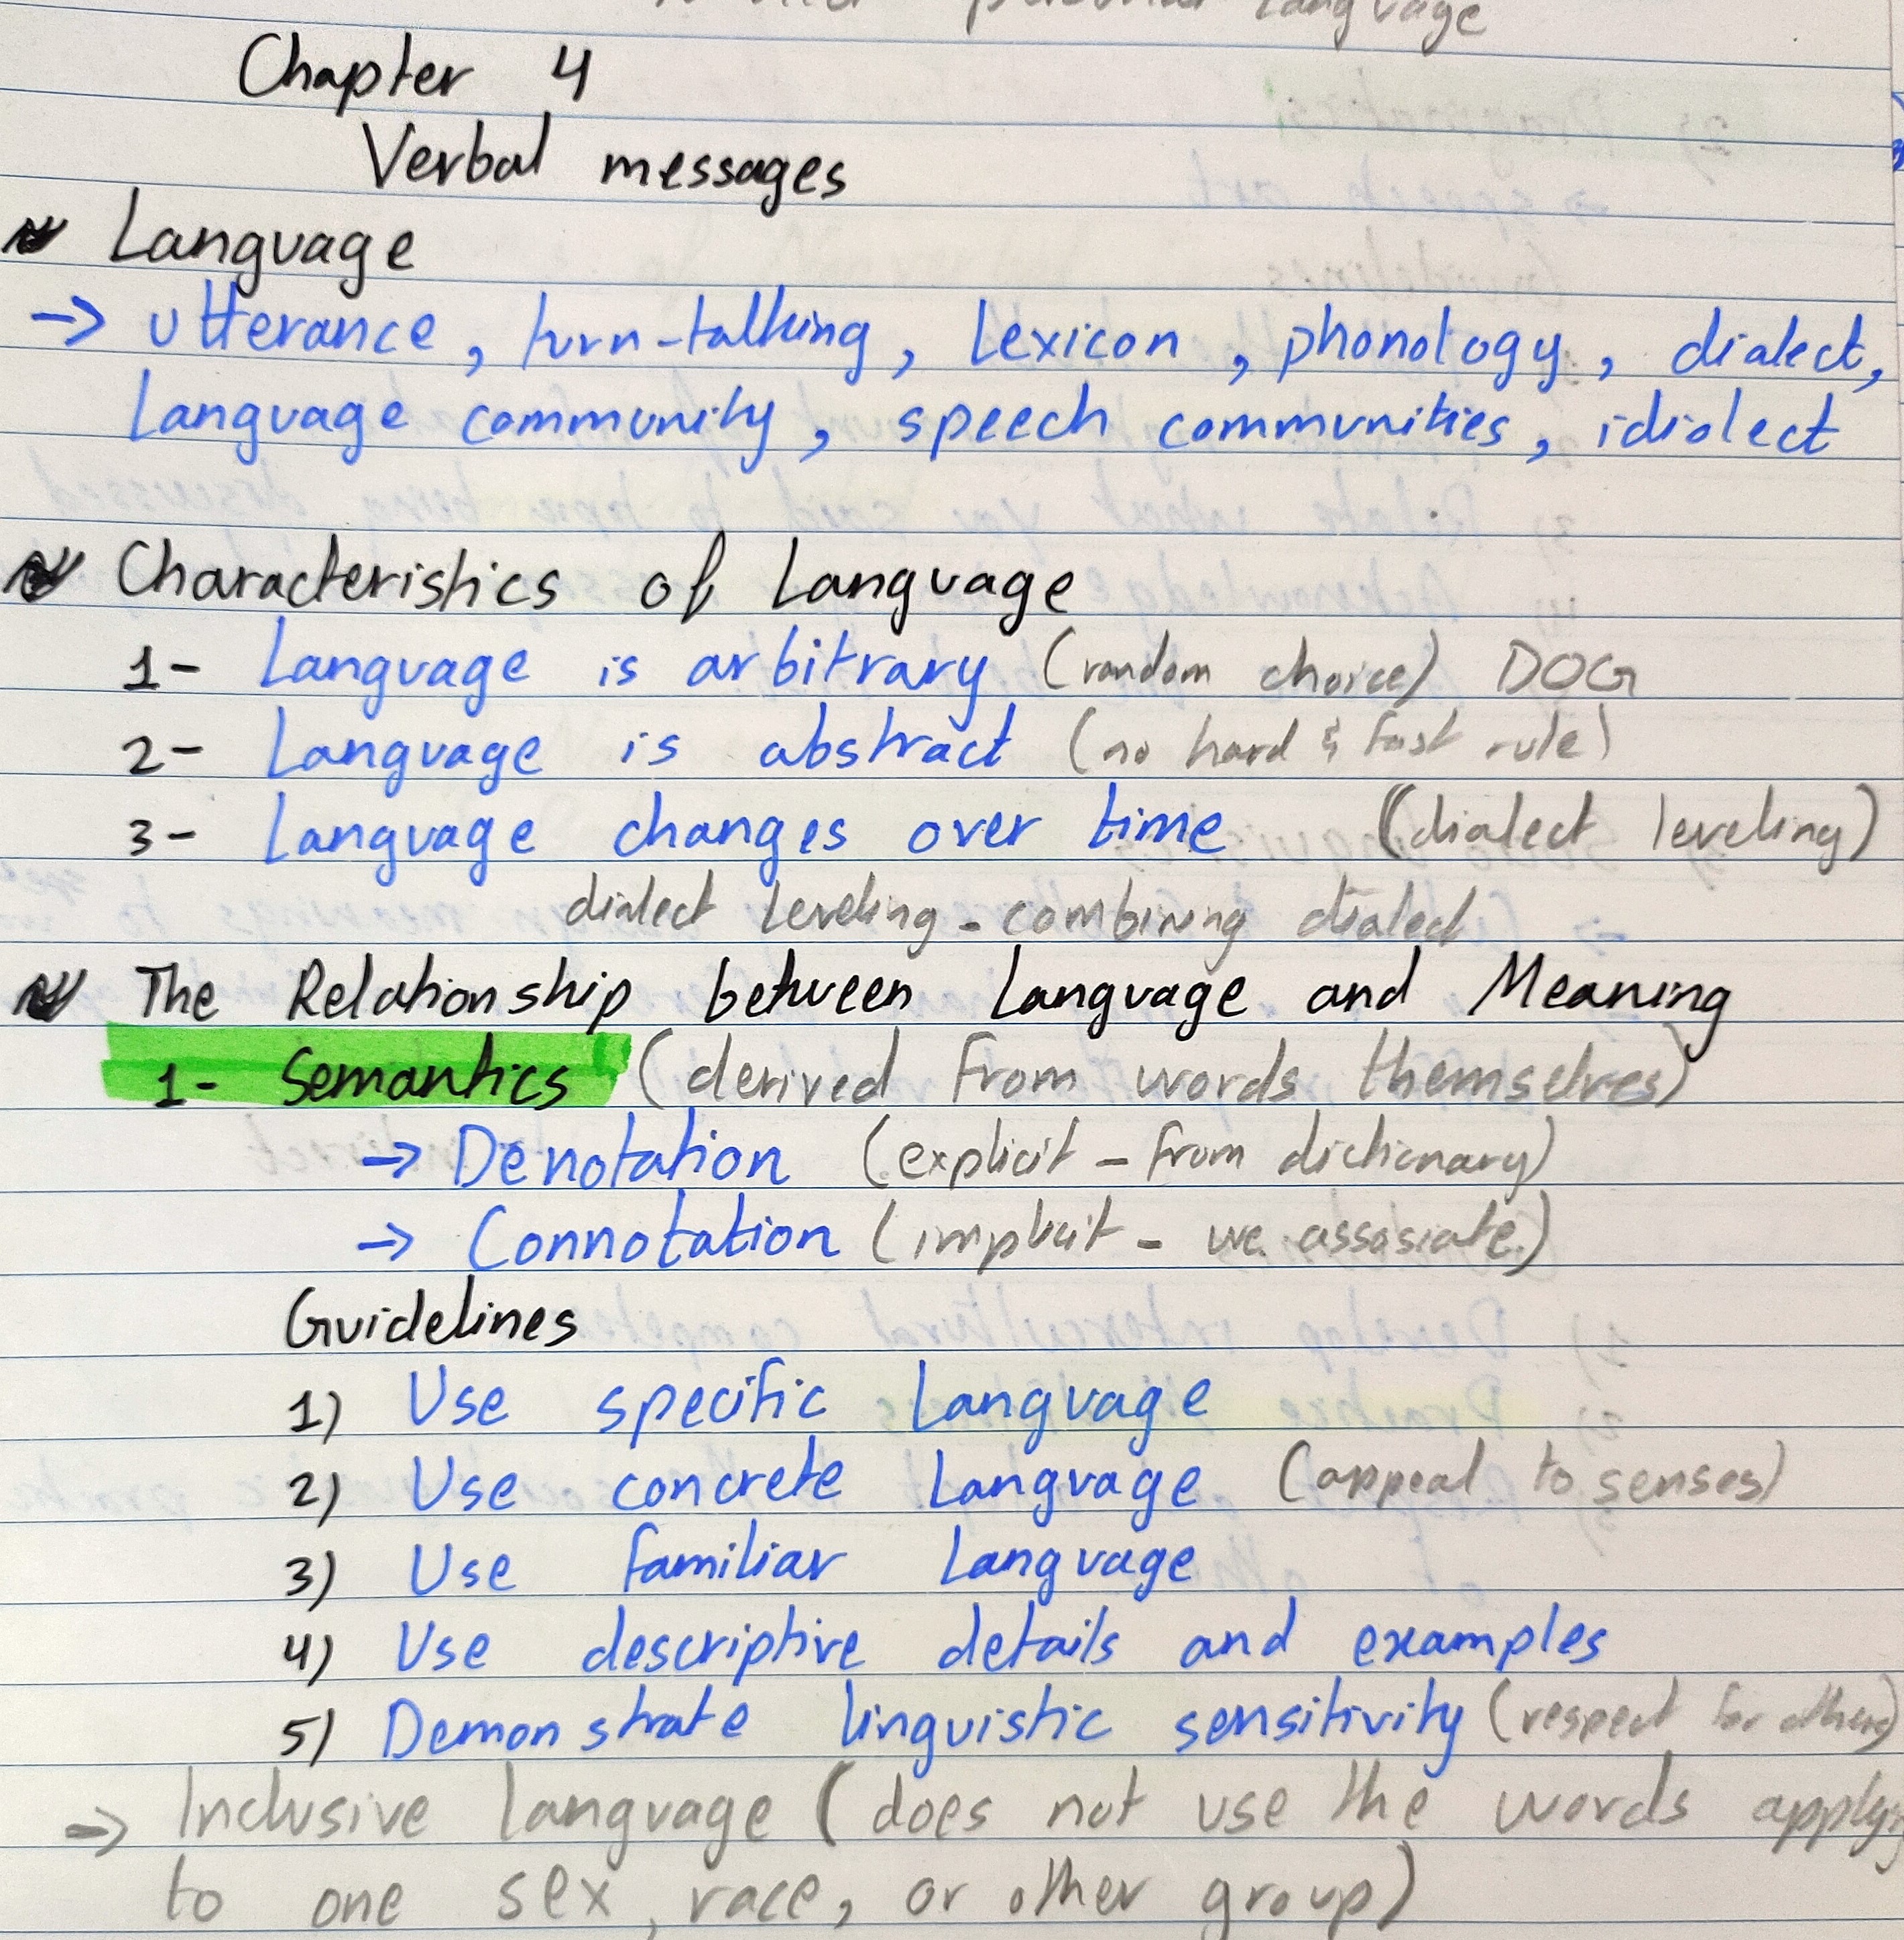 personal language
Chapter 4
Verbal messages
Language
→ utterance, turn-talking, Lexicon, phonology, dialect,
Language community, speech communities, idiolect
Characteristics of Language
1- Language is arbitrary (random choice) DOG
2- Language is abstract (no hard & fast rule)
3- Language changes over time (dialect leveling)
dialect leveling - combining dialect
The Relationship between Language and Meaning
1- Semantics (derived from words themselves)
→ Denotation (explicit - from dictionary)
→ Connotation (implicit - we assosiate)
Guidelines
1) Use specific Language
2) Use concrete Language (appeal to senses)
3) Use familiar Language
4) Use descriptive details and examples
5) Demonstrate linguistic sensitivity (respect for others)
→ Inclusive language (does not use the words apply
to one sex, race, or other group)